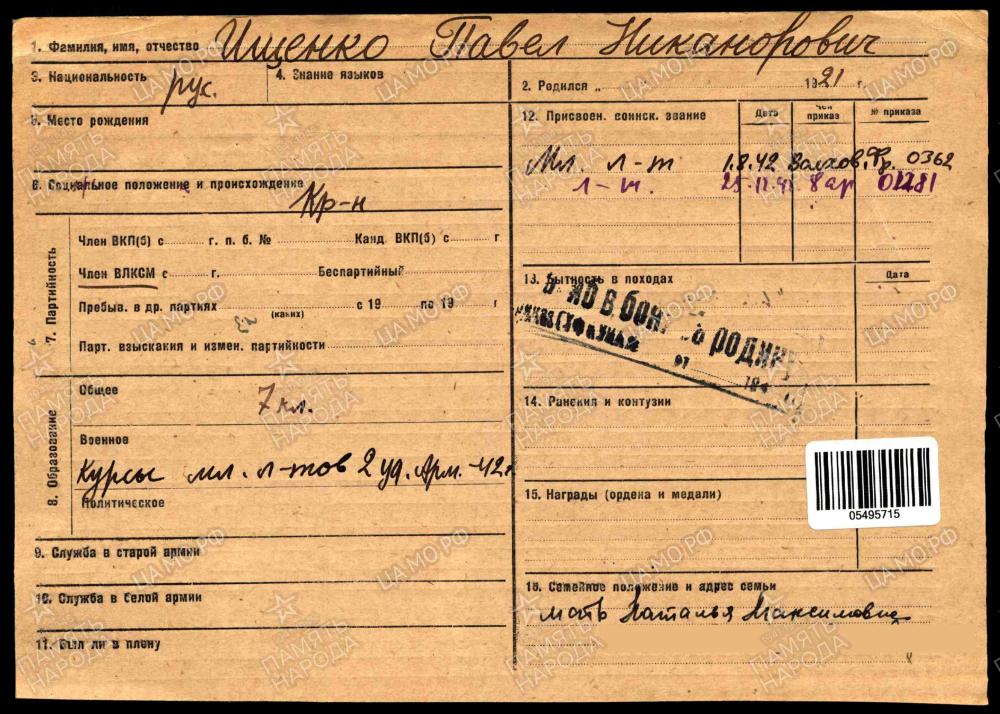 1. Фамилия, имя, отчество Ищенко Павел Никанорович
3. Национальность рус.
4. Знание языков
2. Родился „ 1921 г.
5. Место рождения
6. Социальное положение и происхождение Кр-н
7. Партийность
Член ВКП(б) с г. п. б. № Канд ВКП(б) с г
Член ВЛКСМ с г. Беспартийный
Пребыв. в др. партиях с 19 по 19 г
(каких)
Парт. взыскания и измен. партийности
8. Образование
Общее 7 кл.
Военное
Курсы мл. л-тов 2 уд. Арм. -42 г
Политическое
9. Служба в старой армии
10. Служба в белой армии
11. Был ли в плену
12. Присвоен. воинск. звание Дата Чей приказ № приказа
Мл. л-т 1.8.42 Волхов. Фр. 0362
л-т. 8 ар
13. Бытность в походах Дата
в боях Родину
194
14. Ранения и контузии
15. Награды (ордена и медали)
05495715
16. Семейное положение и адрес семьи
мать Наталья Максимовна
ПАМЯТЬ НАРОДА
ЦАМО.РФ